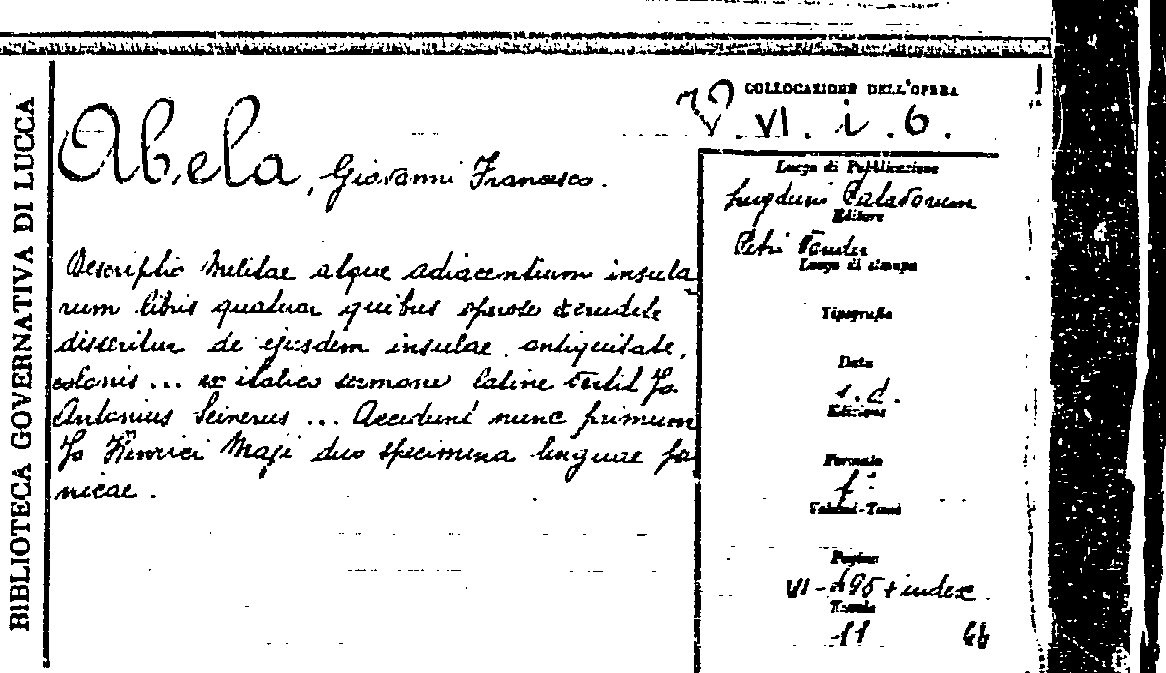 BIBLIOTECA GOVERNATIVA DI LUCCA
Abela, Giovanni Francesco.
Descriptio Melitae atque adiacentium insula
rum libris quatuor quibus operose et erudite
disseritur de ejusdem insulae antiquitate,
colonis ... ex italico sermone latine vertit Jo.
Antonius Seinerus ... Accedunt nunc primum
Jo Henrici Maji duo specimina linguae pu
nicae.
COLLOCAZIONE DELL'OPERA
VI. i. 6.
Luogo di Pubblicazione
Lugduni Batavorum
Editore
Petri Vander
Luogo di stampa
Tipografia
Data
s. d.
Edizione
Formato
f.
Volumi-Tomi
Pagine
VI-195 + index
Tavole
11